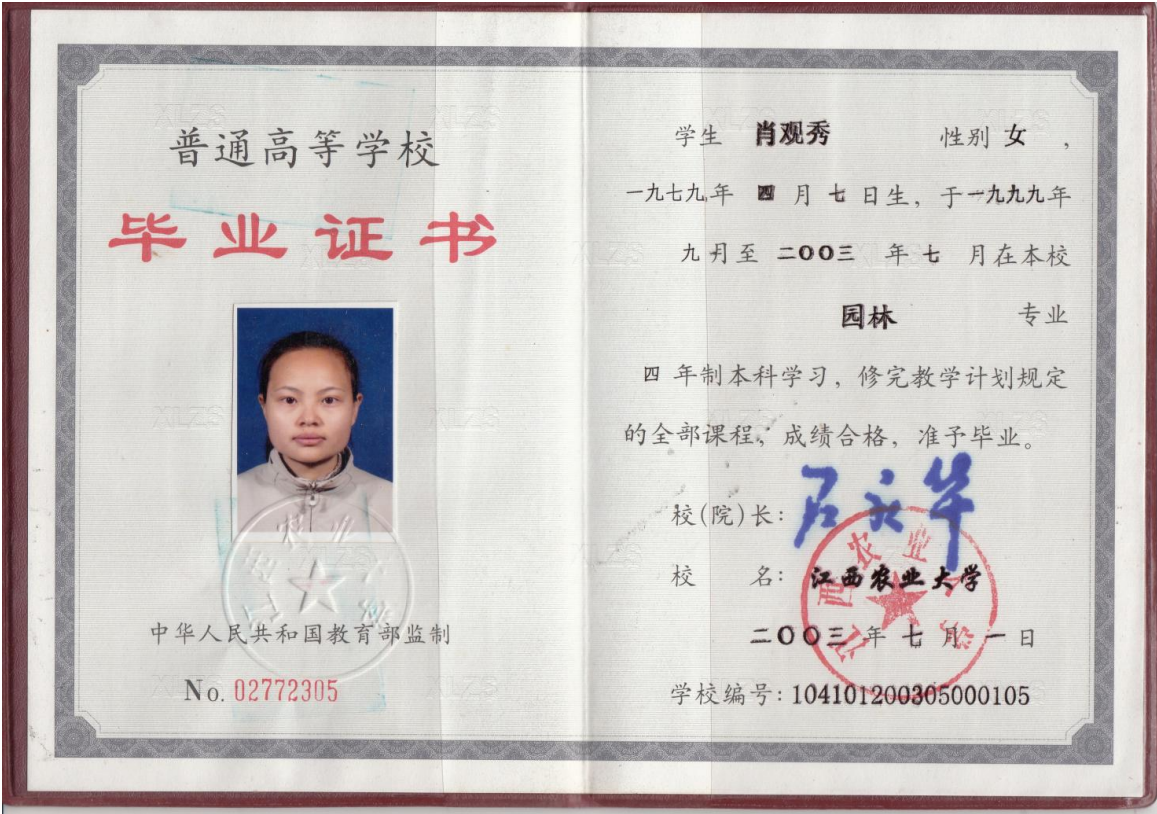 普通高等学校
毕业证书
中华人民共和国教育部监制
No. 02772305
学生 肖观秀 性别 女 ，
一九七九年 四 月 七 日生，于一九九九年
九月至 二〇〇三 年 七 月在本校
园林 专业
四 年制本科学习，修完教学计划规定
的全部课程，成绩合格，准予毕业。
校(院)长：
校 名：江西农业大学
二〇〇三 年 七 月 一 日
学校编号：104101200305000105
XLZS
江西农业大学